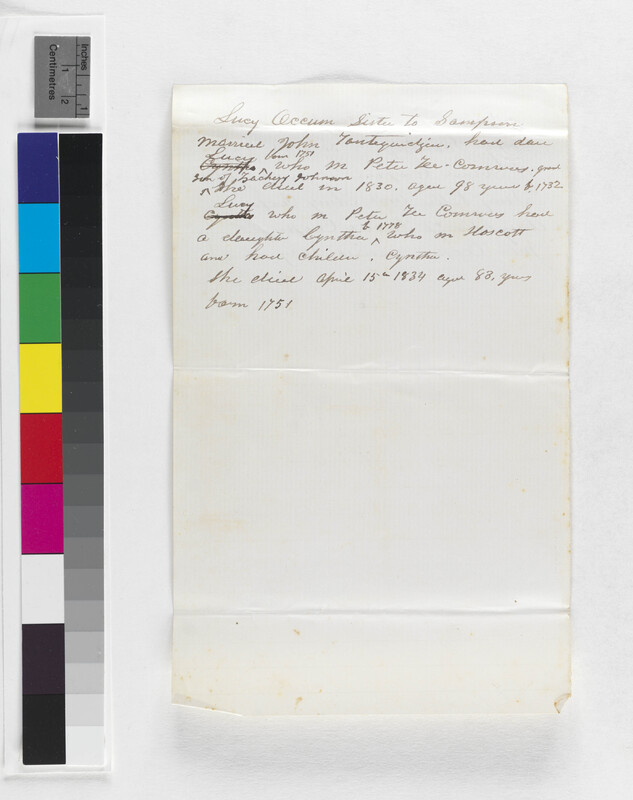 Inches
Centimetres
1
1
2
Lucy Occum Sister to Sampson
Married John Tantequidgin. had dau
Lucy born 1751
Cynthia who m Peter Tee-Comwas. grand
Son of Zachery Johnson
She died in 1830. aged 98 years b. 1732
Lucy
Cynthia who m Peter Tee Comwas had
b 1778
a daughter Cynthia who m Hoscott
and had children. Cynthia.
She died april 15th 1834 aged 83. yrs
born 1751